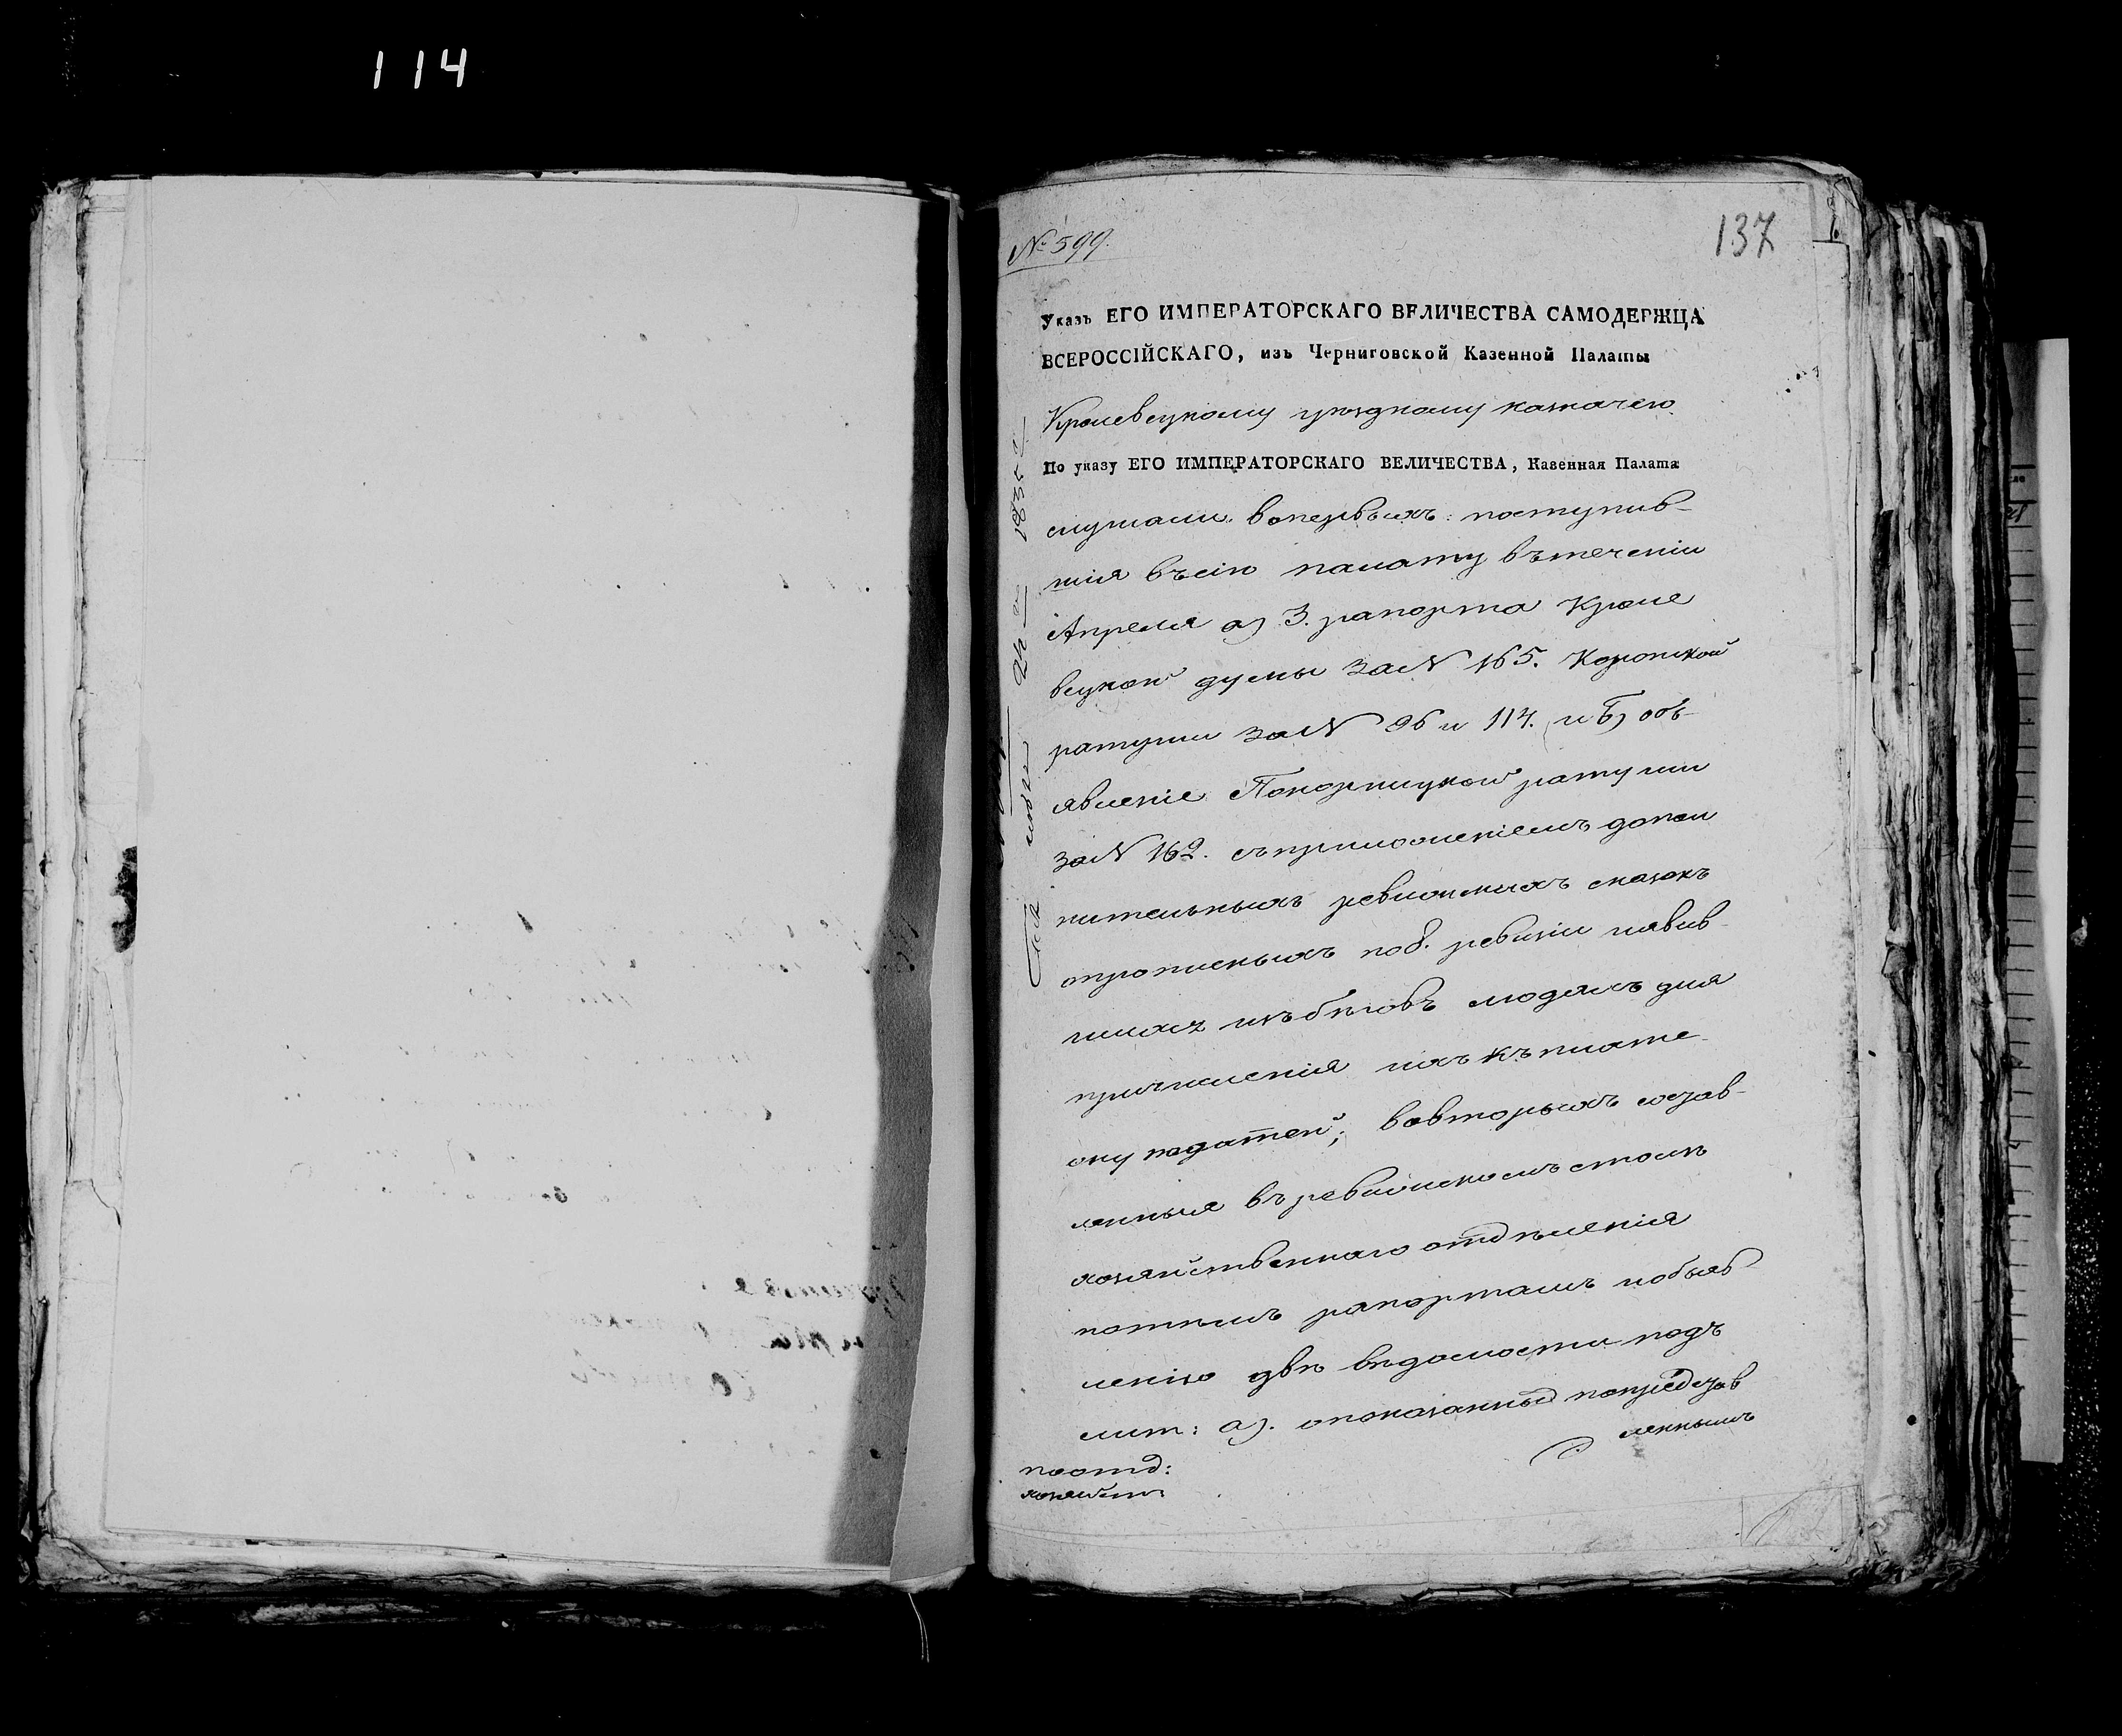 114
№ 599.
137
Указъ ЕГО ИМПЕРАТОРСКАГО ВЕЛИЧЕСТВА САМОДЕРЖЦА
ВСЕРОССІЙСКАГО, изъ Черниговской Казенной Палаты
Кролевецкому уѣздному казначею
По указу ЕГО ИМПЕРАТОРСКАГО ВЕЛИЧЕСТВА, Казенная Палата
слушали: вопервыхъ: поступив-
шія въсію палату втъеченіи
Апреля а) 3. рапорта Кроле
вецкой думы за N 165. Коропской
ратуши за N 96 и 114. и б) объ-
явленіе Понорницкой ратуши
за N 162. съприложеніемъ допол
нительныхъ ревизскихъ сказокъ
опрописныхъ по 8. ревизіи иявив-
шихся изъбѣговъ людяхъ для
причисленія ихъ къ плате-
жу податей; вовторыхъ состав-
ленныя въ ревизскомъ столѣ
хозяйственнаго отдѣленія
потѣмъ рапортамъ иобъяв-
ленію двѣ вѣдомости подъ
лит: а). опоказанных попредстав
леннымъ
поотд:
хозяйств:
1835 г.